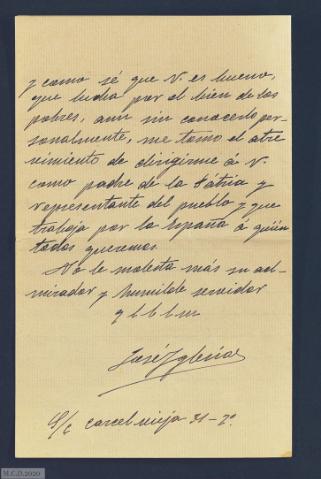 y como sé que V. es bueno,
que lucha por el bien de los
pobres, aun sin conocerlo per-
sonalmente, me tomo el atre-
vimiento de dirigirme á V.
como padre de la Pátria y
representante del pueblo y que
trabaja por la España á quien
todos queremos.
No le molesta más su ad-
mirador y humilde servidor
q b l m
José Yglesias
S/c Carcel vieja 31-2º
M.C.D. 2020